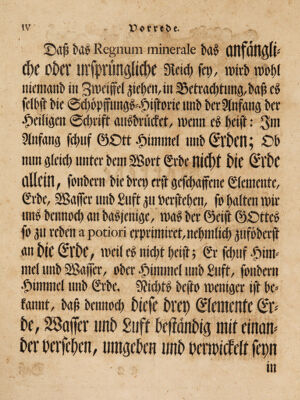 IV Vorrede.
Daß das Regnum minerale das anfängli-
che oder ursprüngliche Reich sey, wird wohl
niemand in Zweiffel ziehen, in Betrachtung, daß es
selbst die Schöpffungs-Historie und der Anfang der
Heiligen Schrifft ausdrücket, wenn es heist: Im
Anfang schuf GOtt Himmel und Erden; Ob
nun gleich unter dem Wort Erde nicht die Erde
allein, sondern die drey erst geschaffene Elemente,
Erde, Wasser und Luft zu verstehen, so halten wir
uns dennoch an dasjenige, was der Geist GOttes
so zu reden a potiori exprimiret, nehmlich zuföderst
an die Erde, weil es nicht heist; Er schuf Him-
mel und Wasser, oder Himmel und Luft, sondern
Himmel und Erde. Nichts desto weniger ist be-
kannt, daß dennoch diese drey Elemente Er-
de, Wasser und Luft beständig mit einan-
der versehen, umgeben und verwickelt seyn
in